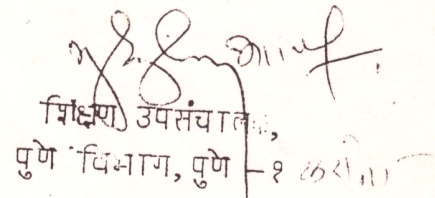 शिक्षण उपसंचालक,
पुणे विभाग, पुणे -१ करीता